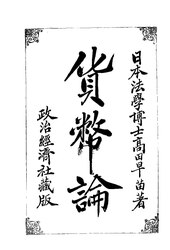 日本法學博士高田早苗著
貨幣論
政治經濟社藏版